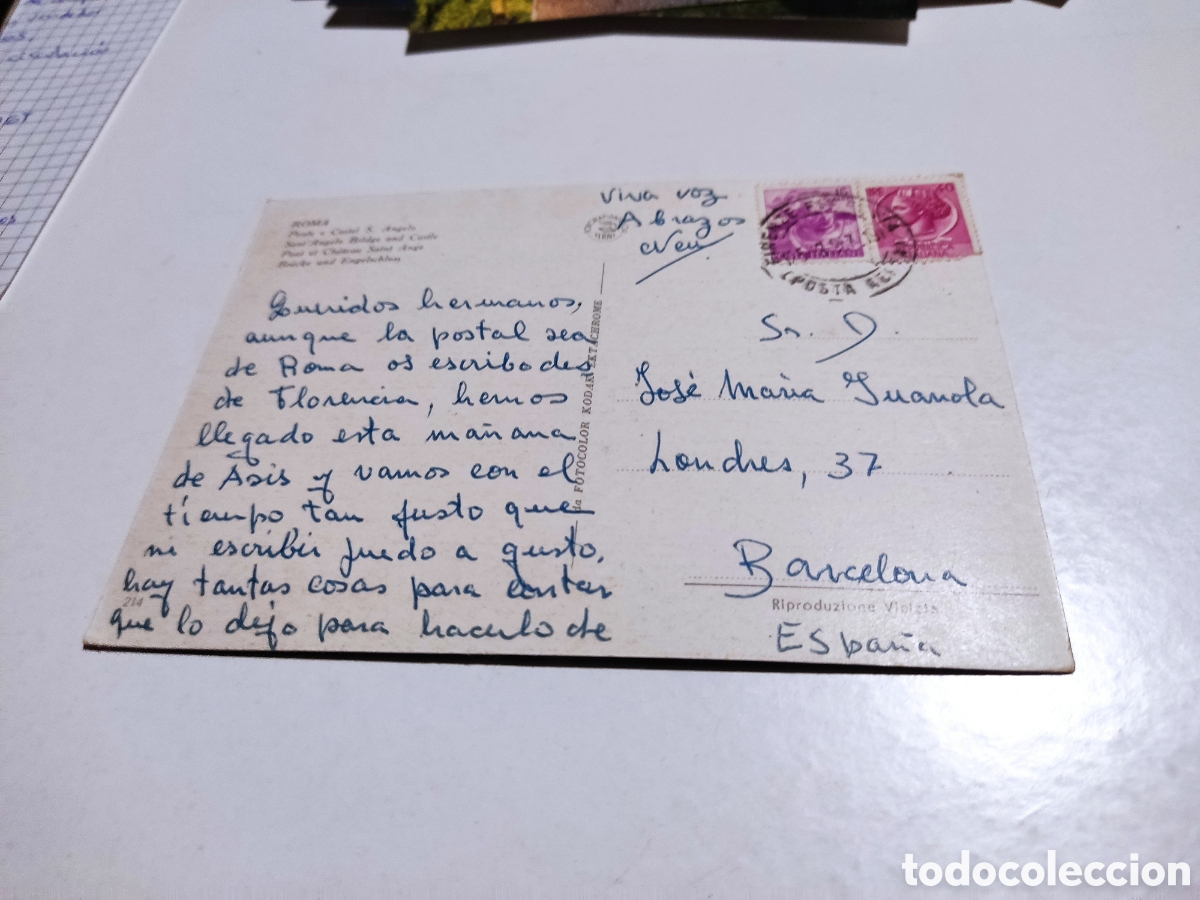 ROMA
Ponte e Castel S. Angelo
Sant'Angelo Bridge and Castle
Pont et Château Saint Ange
Brücke und Engelschloss
Queridos hermanos,
aunque la postal sea
de Roma os escribo des
de Florencia, hemos
llegado esta mañana
de Asis y vamos con el
tiempo tan justo que
ni escribir puedo a gusto,
hay tantas cosas para contar
que lo dejo para hacerlo de
viva voz
Abrazos
214
da FOTOCOLOR KODAK EKTACHROME
POSTA
60
Sr. D.
José Maria Juanola
Londres, 37
Barcelona
Riproduzione Vietata
España
todocoleccion